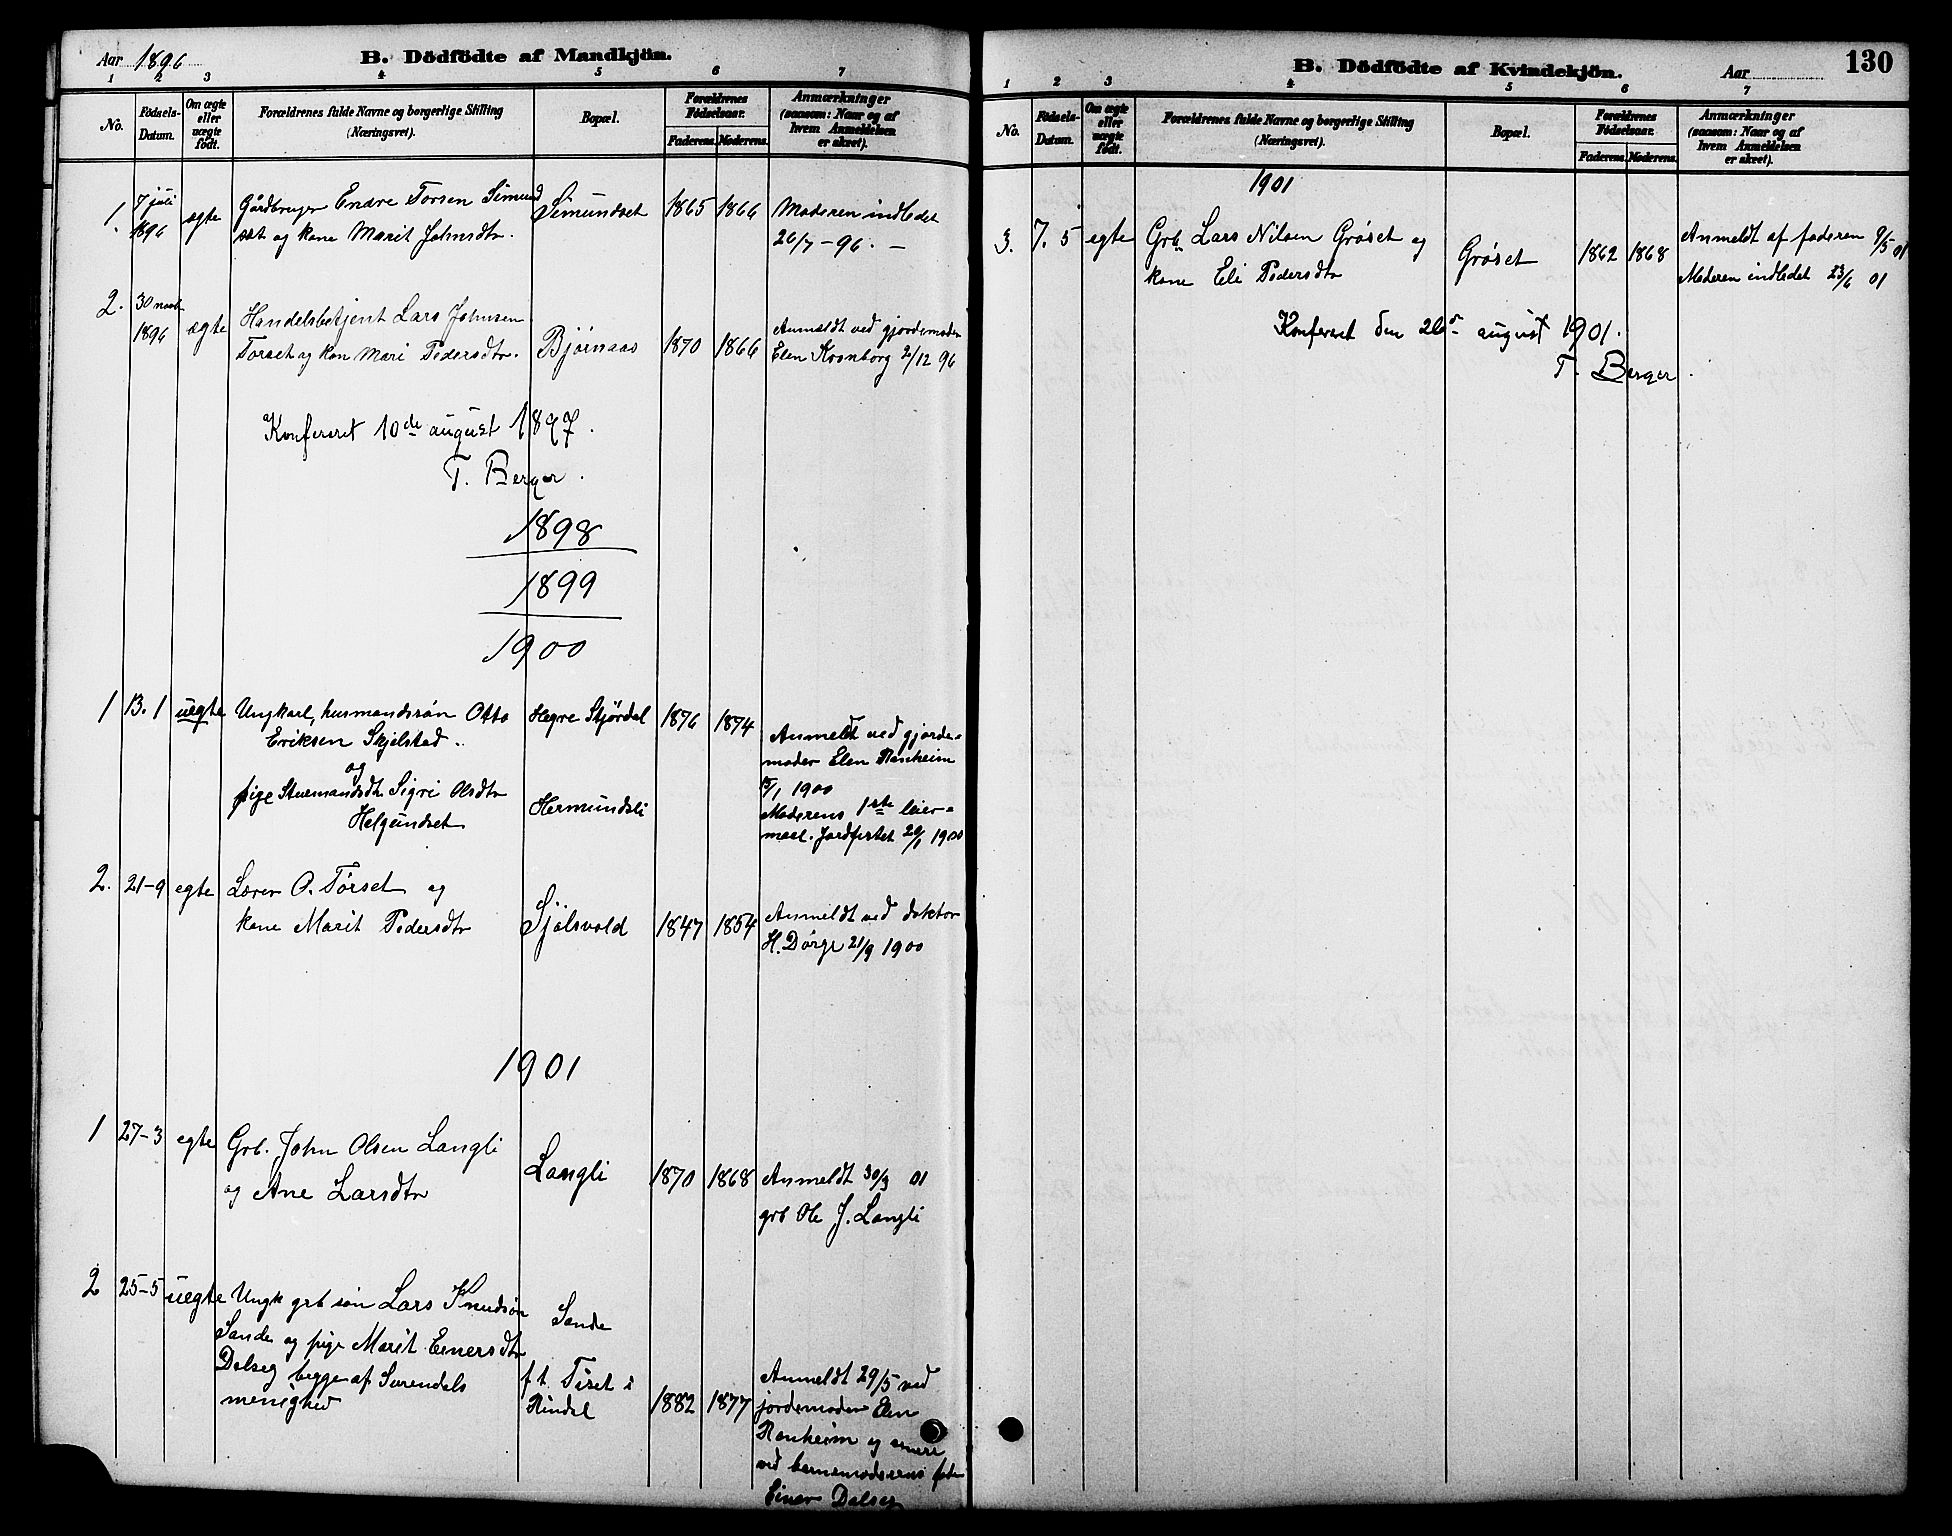 Aar 1896
B. Dödfödte af Mandkjön.
1 2 3 4 5 6 7
No.
Födsels-
Datum.
Om ægte
eller
uægte
födt.
Forældrenes fulde Navne og borgerlige Stilling
(Næringsvei).
Bopæl.
Forældrenes
Födselsaar.
Faderens. Moderens.
Anmærkninger
(saasom: Naar og af
hvem Anmeldelsen
er skeet).
1. 7 juli
1896
ægte
Gårdbruger Endre Torsen Simund
set og kone Marit Johnsdtr.
Simundset
1865 1866
Moderen indledet
26/7 - 96. -
2. 30 novb
1896
ægte
Handelsbetjent Lars Johnsen
Torset og kon Mari Pedersdtr.
Bjørnaas
1870 1866
Anmeldt ved gjordemoder
Elen Kronborg 2/12 96
Konfereret 10de august 1897.
T. Berger.
1898
1899
1900
1 13.1 uegte
Ungkarl, husmandssøn Otto
Eriksen Skjelstad..
og
pige Stuemandsdtr Sigri Olsdtr
Helgundset
Hegre Stjørdal
Hermundsli
1876 1874
Anmeldt ved gjorde-
moder Elen Ranheim
15/1 1900
Moderens 1ste leier-
maal. Jordfestet 20/1 1900
2. 21-9 egte
Lærer O. Tørset og
kone Marit Pedersdtr
Sjølsvold
1847 1854
Anmeldt ved doktor
H. Dørge 21/9 1900
1901
1 27-3 egte
Grb. John Olsen Langli
og Ane Larsdtr
Langli
1870 1868
Anmeldt 30/3 01
grb Ole J. Langli
2 25-5 uegte
Ungk grb søn Lars Knudsøn
Sande og pige Marit Einersdtr
Dalseg begge af Surendals
menighed
Sande
f. t. Tiset i
Rindal
1882 1877
Anmeldt 29/5 ved
jordemoder Elen
Ranheim og
ved barnemoderens fader
Einar Dalseg
B. Dödfödte af Kvindekjön.
Aar
130
1 2 3 4 5 6 7
No.
Födsels-
Datum.
Om ægte
eller
uægte
födt.
Forældrenes fulde Navne og borgerlige Stilling
(Næringsvei).
Bopæl.
Forældrenes
Födselsaar.
Faderens. Moderens.
Anmærkninger
(saasom: Naar og af
hvem Anmeldelsen
er skeet).
1901
3. 7. 5 egte
Grb. Lars Nilsen Grøset og
kone Eli Pedersdtr
Grøset
1862 1868
Anmeldt af faderen 9/5 01
Moderen indledet 23/6 01
Konfereret den 26de august 1901.
T. Berger.